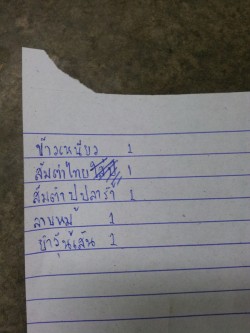 ข้าวเหนียว 1
ส้มตำไทย 1
ส้มตำปูปลาร้า 1
ลาบหมู 1
ยำวุ้นเส้น 1